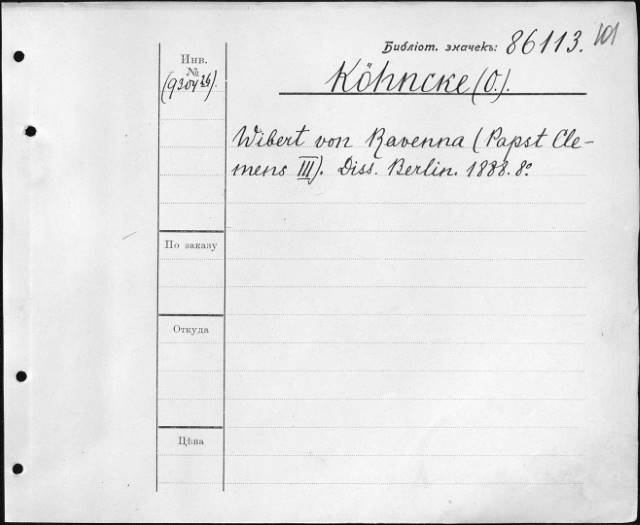 Библіот. значекъ: 86113. 101
Инв.
№
(9304²⁶).
Köhncke (O.).
Wibert von Ravenna (Papst Cle-
mens III). Diss. Berlin. 1888. 8º
По заказу
Откуда
Цѣна